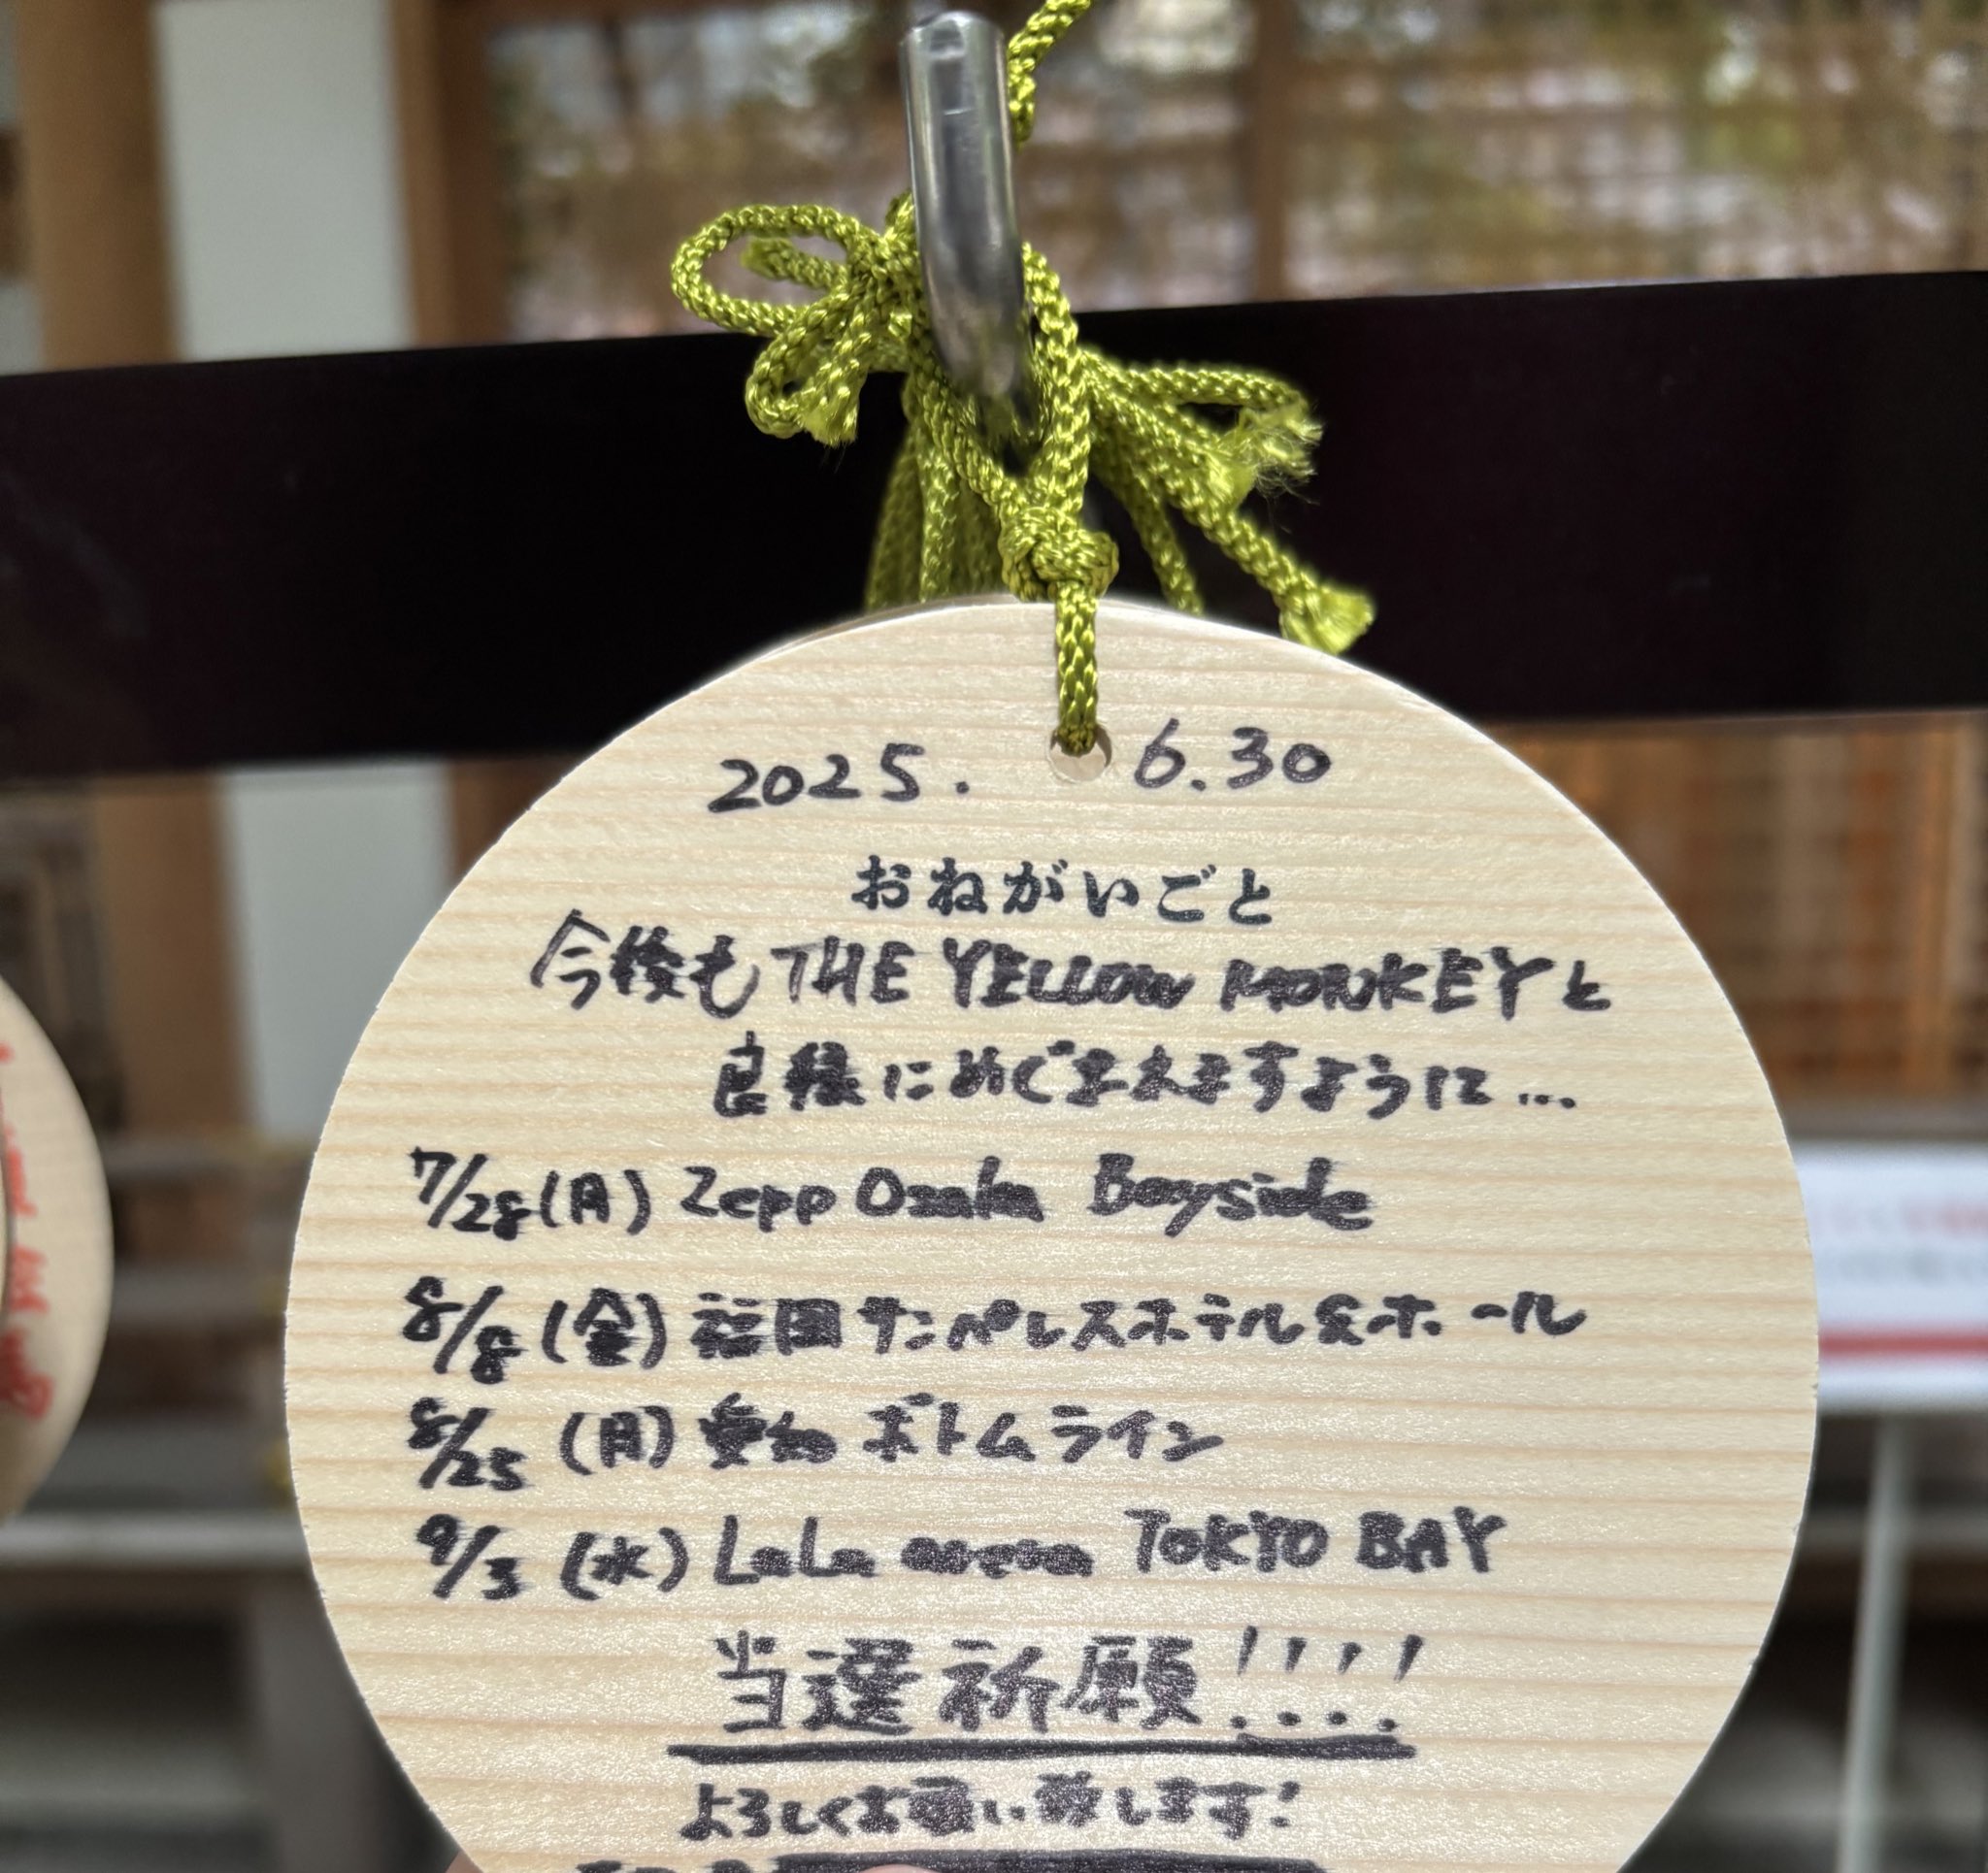 2025. 6.30
おねがいごと
今後も THE YELLOW MONKEYと
良縁にめぐまれますように…
7/28(月) Zepp Osaka Bayside
8/8(金) 福岡サンパレスホテル&ホール
8/25(月) 愛知 ボトムライン
9/3(水) LaLa arena TOKYO BAY
当選祈願!!!!
よろしくお願い致します!